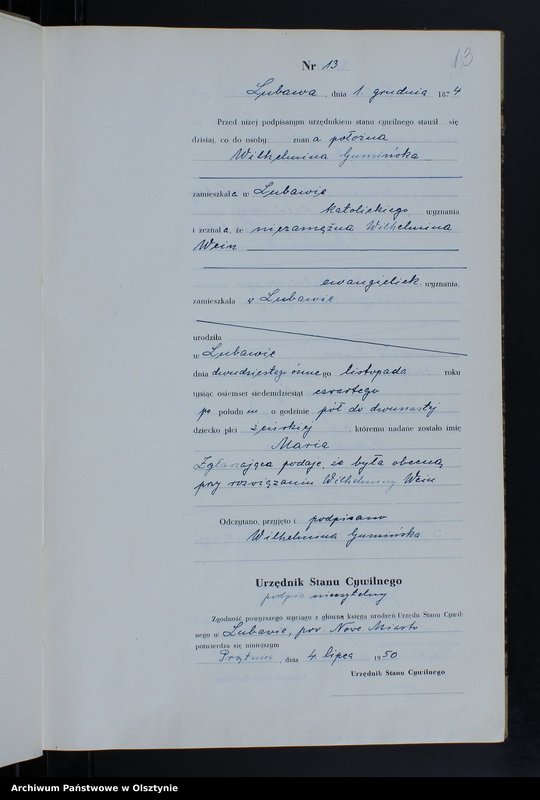 13
Nr 13
Lubawa, dnia 1. grudnia 1874
Przed niżej podpisanym urzędnikiem stanu cywilnego stawił się
dzisiaj, co do osoby znana położna
Wilhelmina Gumińska
zamieszkała w Lubawie
katolickiego wyznania
i zeznała, że niezamężna Wilhelmina
Wein
ewangielick. wyznania,
zamieszkała w Lubawie
urodziła
w Lubawie
dnia dwudziestego ósmego listopada roku
tysiąc osiemset siedemdziesiąt czwartego
po południu o godzinie pół do dwunastej
dziecko płci żeńskiej, któremu nadane zostało imię
Maria
Zgłaszająca podaje, że była obecną
przy rozwiązaniu Wilhelminy Wein
Odczytano, przyjęto i podpisano
Wilhelmina Gumińska
Urzędnik Stanu Cywilnego
podpis nieczytelny
Zgodność powyższego wyciągu z główną księgą urodzeń Urzędu Stanu Cywil-
nego w Lubawie, pow. Nowe Miasto
potwierdza się niniejszym
, dnia 4. lipca 1950
Urzędnik Stanu Cywilnego
Archiwum Państwowe w Olsztynie